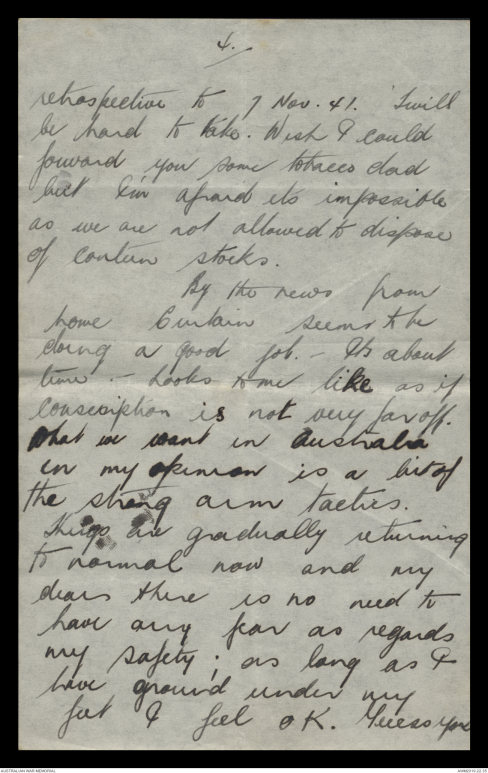 4.
retrospective to 7 Nov. 41. Twill
be hard to take. Wish I could
forward you some tobacco dad
but I'm afraid its impossible
as we are not allowed to dispose
of canteen stocks.
By the news from
home Curtain seems to be
doing a good job. - Its about
time - Looks to me like as if
conscription is not very far off.
What we want in Australia
in my opinion is a bit of
the strong arm tactics.
Things are gradually returning
to normal now and my
dears there is no need to
have any fear as regards
my safety; as long as I
have ground under my
feet I feel OK. Guess you
AUSTRALIAN WAR MEMORIAL